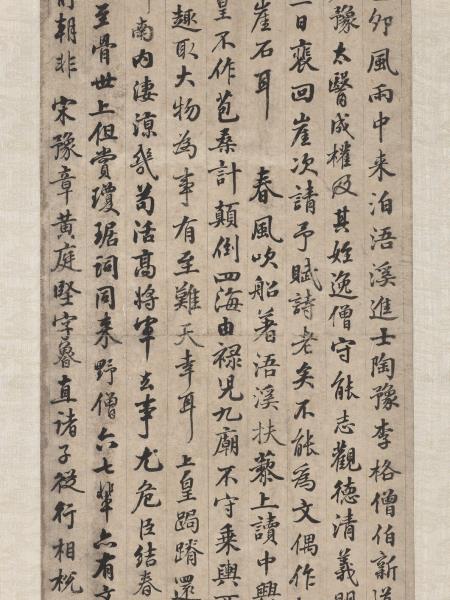 卯風雨中来泊浯溪進士陶豫李格僧伯新道
豫太醫成權及其姪逸僧守能志觀德清義明
日裵回崖次請予賦詩老矣不能為文偶作
崖石耳 春風吹船著浯溪扶藜上讀中興
皇不作苞桑計顛倒四海由禄児九廟不守乘輿西
趣取大物為事有至難天幸耳上皇跼蹐還
南内凄凉幾苟活高將軍去事尤危臣結舂
至骨世上但賞瓊琚詞同来野僧六七輩亦有文
前朝非 宋豫章黄庭堅字魯直諸子從行相梲